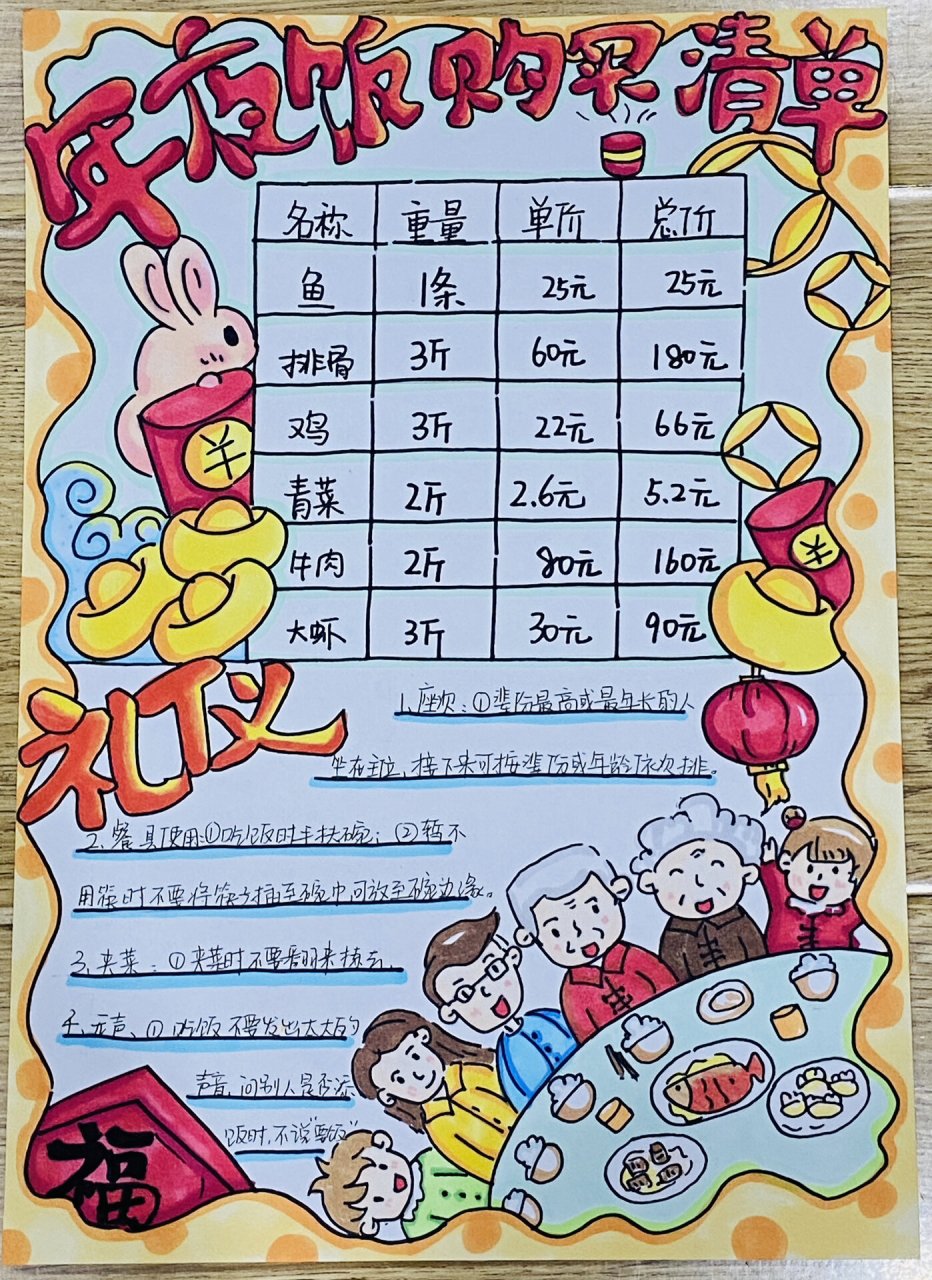 年夜饭购买清单
名称 重量 单价 总价
鱼 1条 25元 25元
排骨 3斤 60元 180元
鸡 3斤 22元 66元
青菜 2斤 2.6元 5.2元
牛肉 2斤 80元 160元
大虾 3斤 30元 90元
¥
¥
礼仪
1.座次:①辈份最高或最年长的人
坐在主位,接下来可按辈份或年龄依次排。
2、餐具使用:①吃饭时手扶碗;②暂不
用筷时不要将筷子插至碗中可放至碗边缘。
3、夹菜:①夹菜时不要翻来拣去。
声、①吃饭不要发出大大的
声音,问别人是否添
饭时,不说"要饭"
福